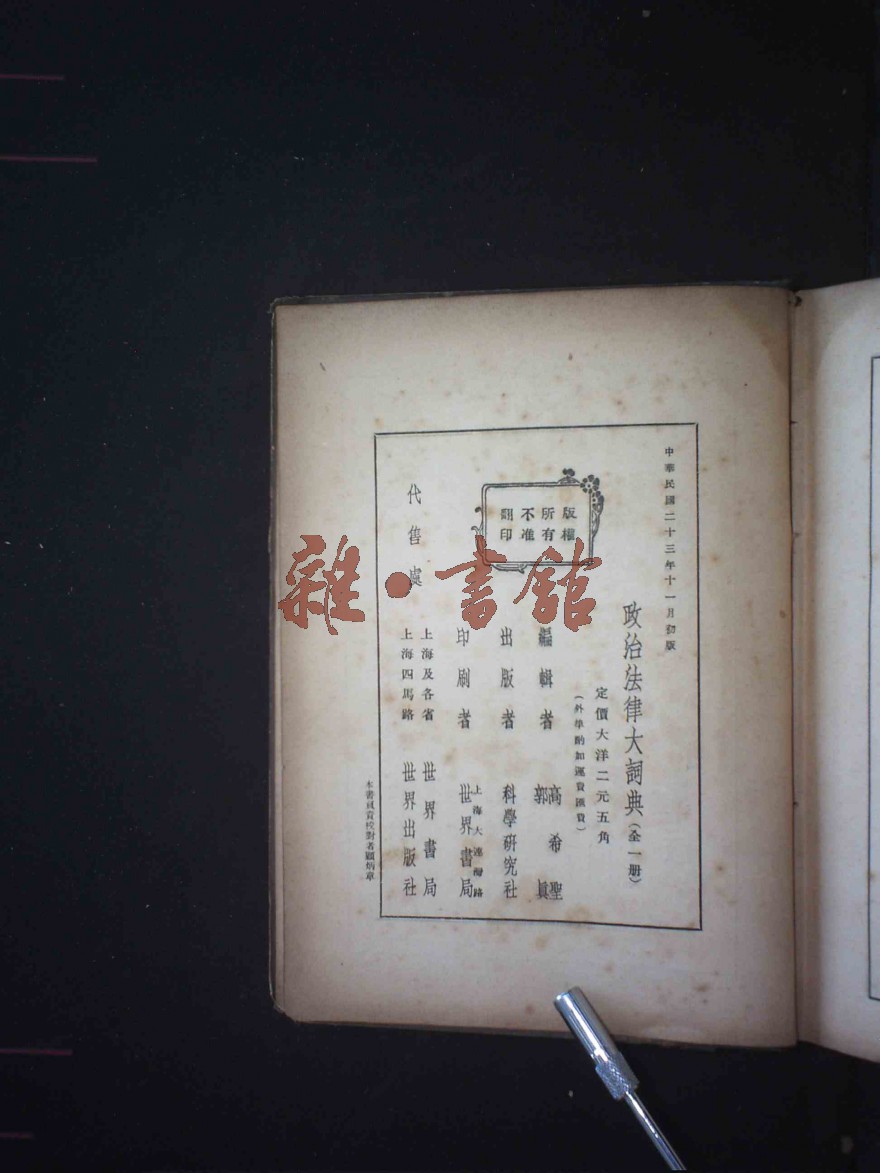 中華民國二十三年十一月初版
政治法律大詞典（全一册）
定價大洋二元五角
（外埠酌加運費匯費）
版權
所有
不准
翻印
編輯者 高希聖 郭真
出版者 科學研究社
印刷者 上海大連灣路 世界書局
代售處
上海及各省 世界書局
上海四馬路 世界出版社
本書負責校對者顧炳章
雜·書館